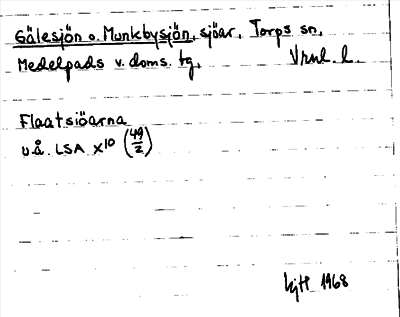 Gälesjön o. Munkbysjön, sjöar, Torps sn,
Medelpads v. doms. tg, Vrnl. l.
Flaatsiöarna
u.å. LSA X10 (49/2)
1968